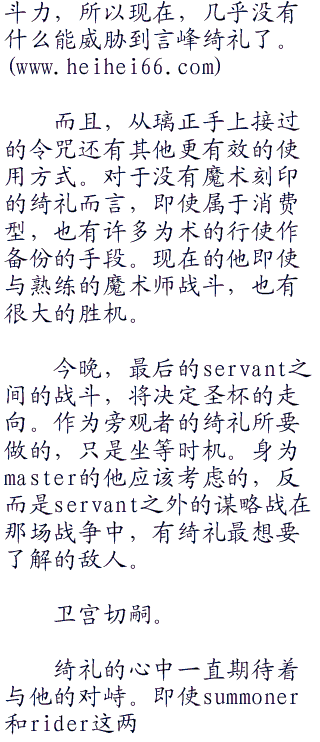 斗力，所以现在，几乎没有
什么能威胁到言峰绮礼了。
(www.heihei66.com)
而且，从璃正手上接过
的令咒还有其他更有效的使
用方式。对于没有魔术刻印
的绮礼而言，即使属于消费
型，也有许多为术的行使作
备份的手段。现在的他即使
与熟练的魔术师战斗，也有
很大的胜机。
今晚，最后的servant之
间的战斗，将决定圣杯的走
向。作为旁观者的绮礼所要
做的，只是坐等时机。身为
master的他应该考虑的，反
而是servant之外的谋略战在
那场战争中，有绮礼最想要
了解的敌人。
卫宫切嗣。
绮礼的心中一直期待着
与他的对峙。即使summoner
和rider这两